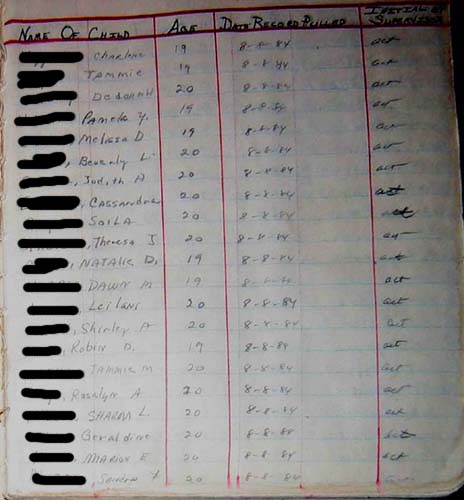 NAME OF CHILD AGE DATE RECORD PULLED INITIAL BY SUPERVISOR
Charlene 19 8-8-84 act
Tammie 19 8-8-84 act
Deborah 20 8-8-84 act
Pamela Y. 19 8-8-84 act
Melissa D 19 8-8-84 act
, Beverly L. 20 8-8-84 act
, Judith A 20 8-8-84 act
, Cassandra 20 8-8-84 act
Saila 20 8-8-84 act
, Theresa J 20 8-8-84 act
, NATALIE D. 19 8-8-84 act
DAWN M 19 8-8-84 act
, Leilani 20 8-8-84 act
, Shirley A 20 8-8-84 act
, Robin D. 19 8-8-84 act
Tammie M 20 8-8-84 act
, Rosalyn A 20 8-8-84 act
, SHARON L. 20 8-8-84 act
Geraldine 20 8-8-84 act
, MARION E 20 8-8-84 act
20 8-8-84